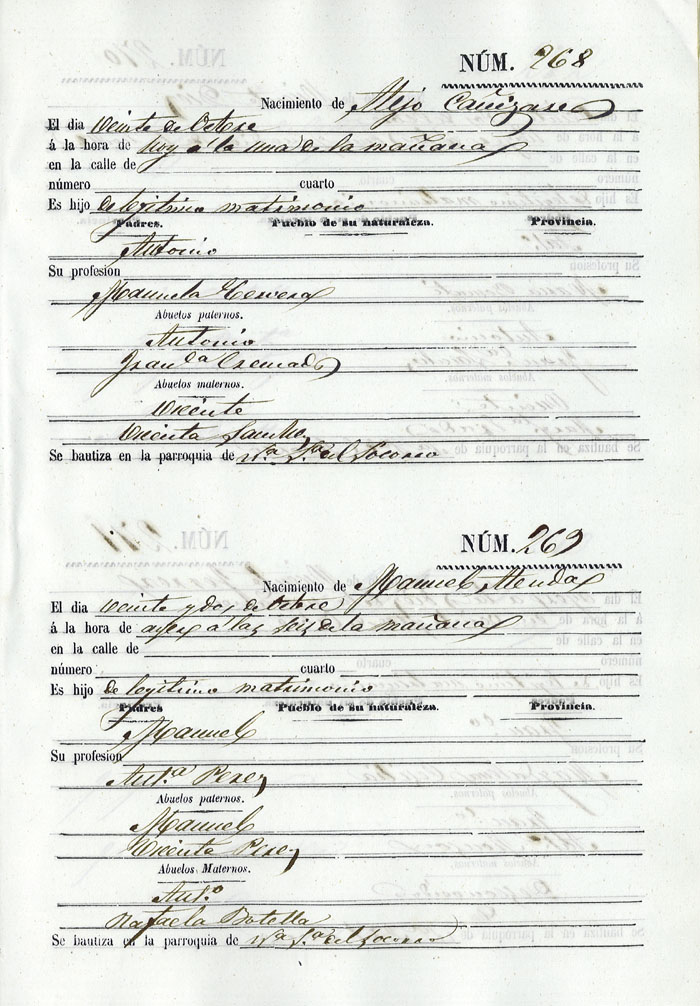 NÚM. 268
Nacimiento de Alejo Cañizares
El dia veinte de Octere
á la hora de hoy a la una de la mañana
en la calle de
número cuarto
Es hijo de legitimo matrimonio
Padres. Pueblo de su naturaleza. Provincia.
Antonio
Su profesion
Manuela Herrera
Abuelos paternos.
Antonio
Franca Cremades
Abuelos maternos.
Vicente
Vicenta Sancho
Se bautiza en la parroquia de Na. Sa. del Socorro
NÚM. 269
Nacimiento de Manuel
El dia veinte y dos de Octere
á la hora de ayer a las seis de la mañana
en la calle de
número cuarto
Es hijo de legitimo matrimonio
Padres Pueblo de su naturaleza. Provincia.
Manuel
Su profesion
Anta. Perez
Abuelos paternos.
Manuel
Vicenta Perez
Abuelos Maternos.
Anto.
Rafaela Botella
Se bautiza en la parroquia de Na. Sa. del Socorro